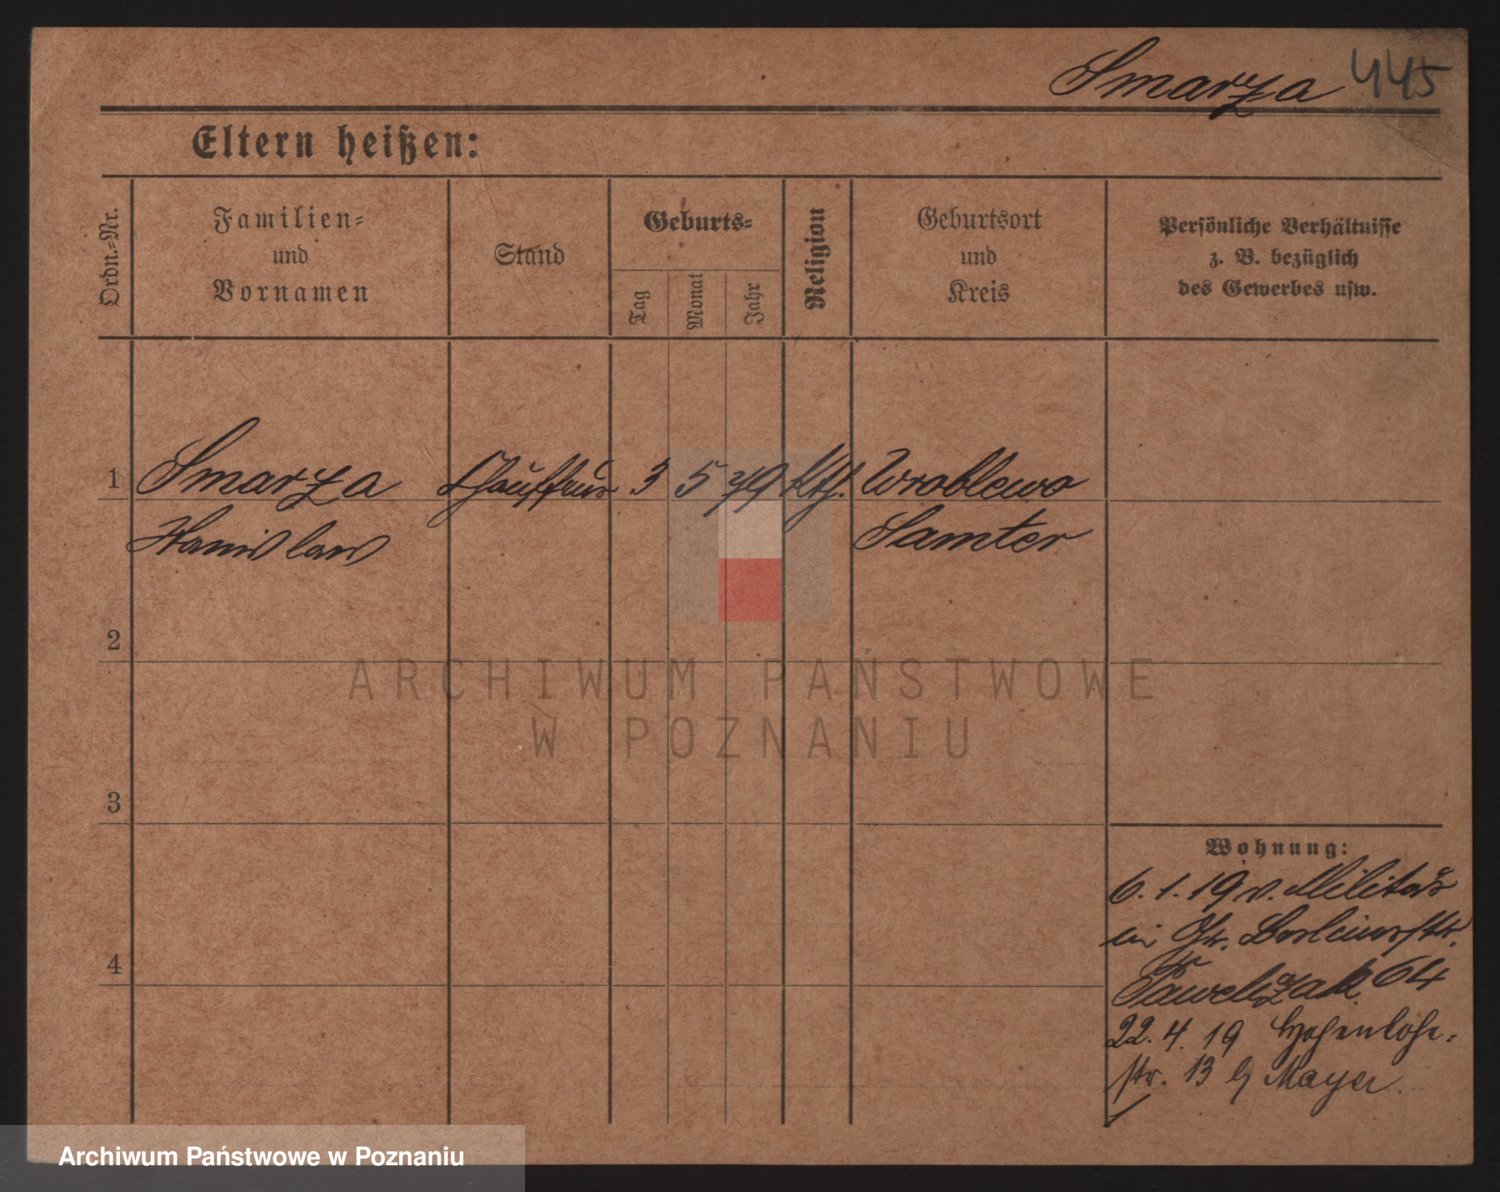 Smarza 445
Eltern heißen:
Ordn.-Nr.
Familien-
und
Vornamen
Stand
Geburts-
Tag
Monat
Jahr
Religion
Geburtsort
und
Kreis
Persönliche Verhältnisse
z. B. bezüglich
des Gewerbes usw.
1 Smarza Chauffeur 3 5 79 Kth. Wroblewo
Stanislaw Samter
2
3
4
Wohnung:
6.1.19 v. Militär
Gr. Berlinerstr.
Pawelczak 64
22.4.19 Hohenlohe-
str. 13 b Mayer.
ARCHIWUM PAŃSTWOWE
W POZNANIU
Archiwum Państwowe w Poznaniu